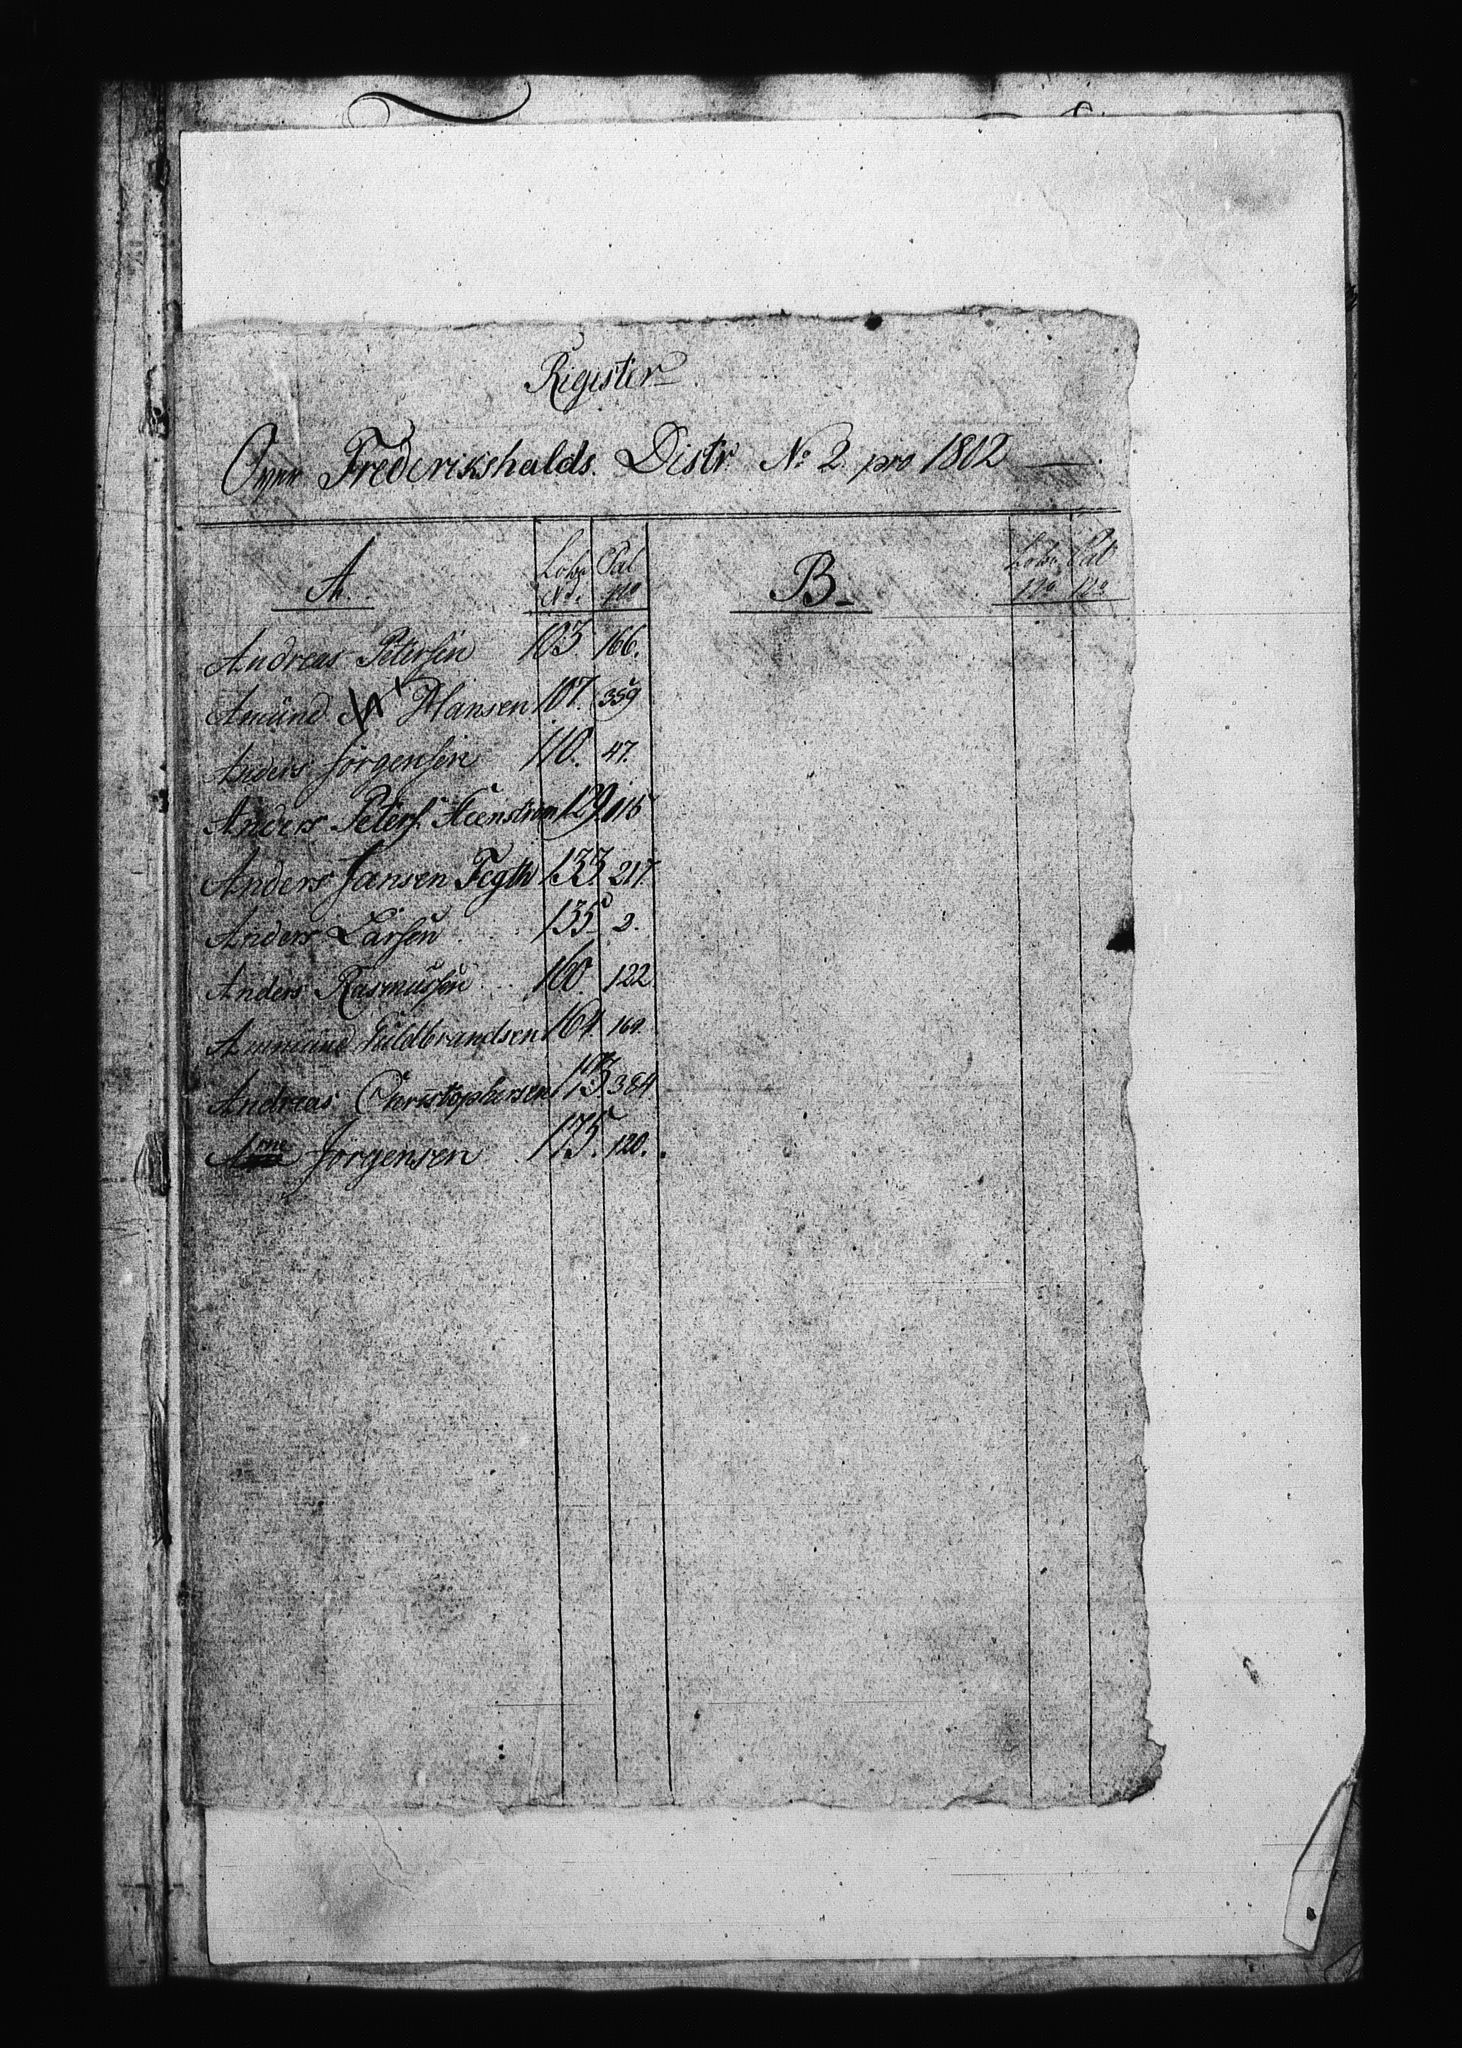 Register
Over Frederikshalds. Distr. No 2. pro 1802
A.
Løbe Pat
No. No
B
Løbe Pat
No No
Andreas Petersen 103 166.
Amund Hansen 107. 359
Anders Jørgensen 110. 47.
Anders Peters. Steenstrøm 129. 115
Anders Jansen Fegth 133 217.
Anders Larsen 135 2.
Anders Rasmusen 160. 122
Ammund Guldbrandsen 164. 169.
Andreas Christophersen 173. 384
Arne Jørgensen 175. 120.